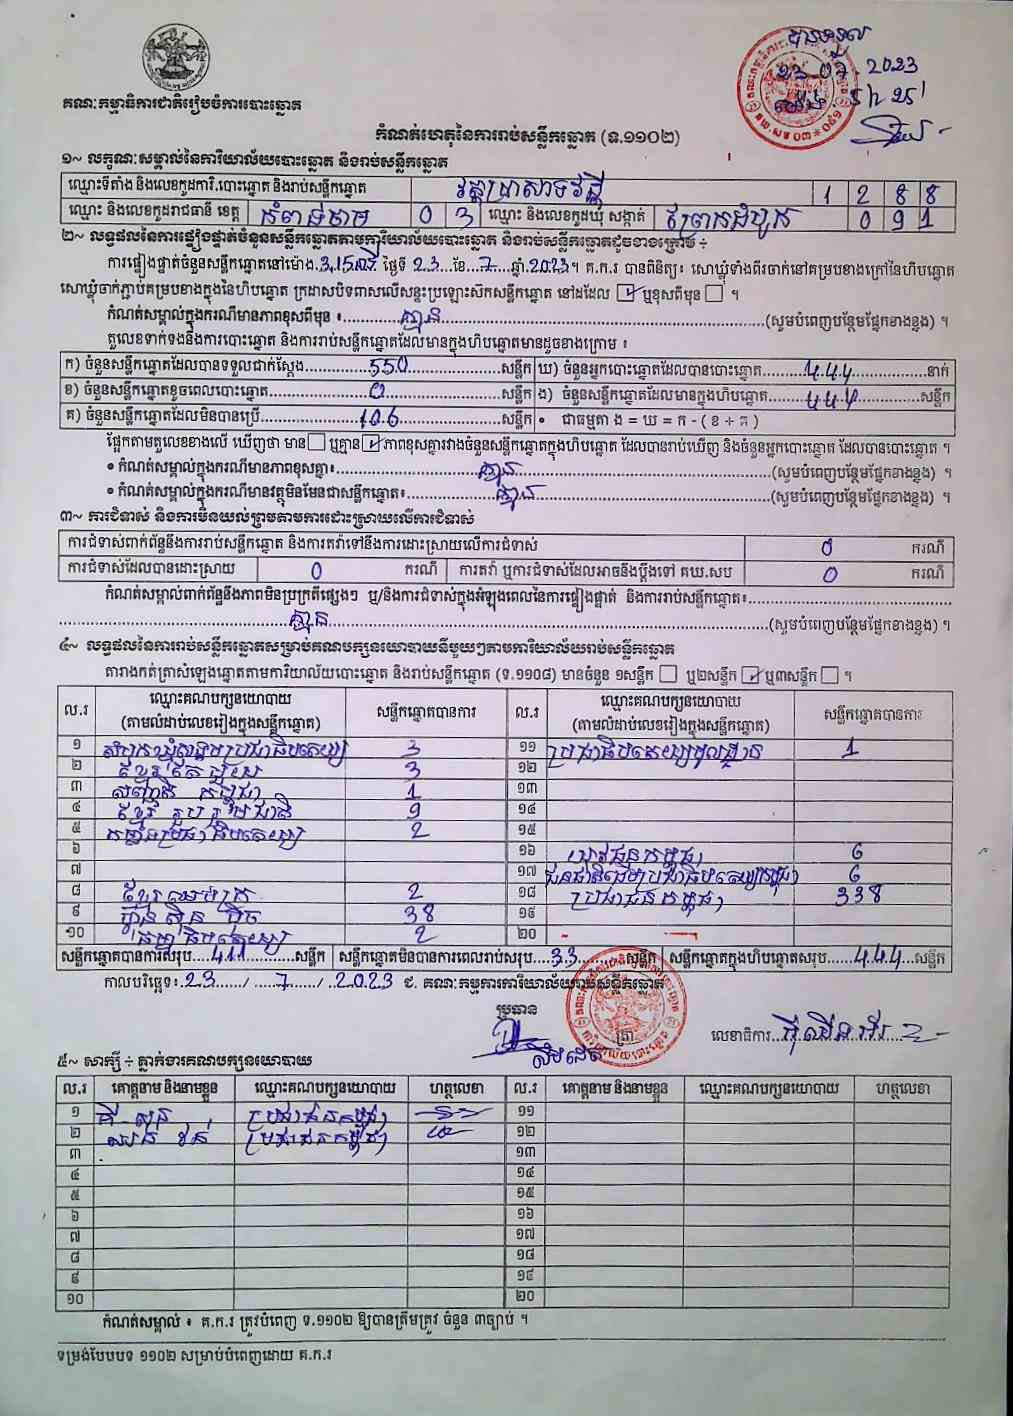 បានទទួល
23-07-2023
ម៉ោង 5h 25'
គណៈកម្មាធិការជាតិរៀបចំការបោះឆ្នោត
កំណត់ហេតុនៃការរាប់សន្លឹកឆ្នោត (ទ.១១០២)
១~ លក្ខណៈសម្គាល់នៃការិយាល័យបោះឆ្នោត និងរាប់សន្លឹកឆ្នោត
ឈ្មោះទីតាំង និងលេខកូដការិ.បោះឆ្នោត និងរាប់សន្លឹកឆ្នោត វត្តប្រាសាទវត្តី 1 2 8 8
ឈ្មោះ និងលេខកូដរាជធានី ខេត្ត កំពង់ចាម 0 3 ឈ្មោះ និងលេខកូដឃុំ សង្កាត់ ព្រែកដំបូក 0 9 1
២~ លទ្ធផលនៃការផ្ទៀងផ្ទាត់ចំនួនសន្លឹកឆ្នោតតាមការិយាល័យបោះឆ្នោត និងរាប់សន្លឹកឆ្នោតដូចខាងក្រោម ÷
ការផ្ទៀងផ្ទាត់ចំនួនសន្លឹកឆ្នោតនៅម៉ោង.3:15.... ថ្ងៃទី 23...ខែ...7...ឆ្នាំ.2023។ គ.ក.រ បានពិនិត្យ៖ សោឃ្លុំទាំងពីរចាក់នៅគម្របខាងក្រៅនៃហិបឆ្នោត
សោឃ្លុំចាក់ភ្ជាប់គម្របខាងក្នុងនៃហិបឆ្នោត ក្រដាសបិទពាសលើសន្ទះប្រឡោះស៊កសន្លឹកឆ្នោត នៅដដែល ☑ ឬខុសពីមុន ☐ ។
កំណត់សម្គាល់ក្នុងករណីមានភាពខុសពីមុន ៖ គ្មាន (សូមបំពេញបន្ថែមផ្នែកខាងខ្នង) ។
តួលេខទាក់ទងនឹងការបោះឆ្នោត និងការរាប់សន្លឹកឆ្នោតដែលមានក្នុងហិបឆ្នោតមានដូចខាងក្រោម ៖
ក) ចំនួនសន្លឹកឆ្នោតដែលបានទទួលជាក់ស្តែង 550 សន្លឹក ឃ) ចំនួនអ្នកបោះឆ្នោតដែលបានបោះឆ្នោត 444 នាក់
ខ) ចំនួនសន្លឹកឆ្នោតខូចពេលបោះឆ្នោត 0 សន្លឹក ង) ចំនួនសន្លឹកឆ្នោតដែលមានក្នុងហិបឆ្នោត 444 សន្លឹក
គ) ចំនួនសន្លឹកឆ្នោតដែលមិនបានប្រើ 106 សន្លឹក • ជាធម្មតា ង = ឃ = ក - ( ខ + គ )
ផ្អែកតាមតួលេខខាងលើ ឃើញថា មាន ☐ ឬគ្មាន ☑ ភាពខុសគ្នារវាងចំនួនសន្លឹកឆ្នោតក្នុងហិបឆ្នោត ដែលបានរាប់ឃើញ និងចំនួនអ្នកបោះឆ្នោត ដែលបានបោះឆ្នោត ។
• កំណត់សម្គាល់ក្នុងករណីមានភាពខុសគ្នា៖ គ្មាន (សូមបំពេញបន្ថែមផ្នែកខាងខ្នង) ។
• កំណត់សម្គាល់ក្នុងករណីមានវត្ថុមិនមែនជាសន្លឹកឆ្នោត៖ គ្មាន (សូមបំពេញបន្ថែមផ្នែកខាងខ្នង) ។
៣~ ការជំទាស់ និងការមិនយល់ព្រមតាមការដោះស្រាយលើការជំទាស់
ការជំទាស់ពាក់ព័ន្ធនឹងការរាប់សន្លឹកឆ្នោត និងការតវ៉ាទៅនឹងការដោះស្រាយលើការជំទាស់ 0 ករណី
ការជំទាស់ដែលបានដោះស្រាយ 0 ករណី ការតវ៉ា ឬការជំទាស់ដែលអាចនឹងប្តឹងទៅ គឃ.សប 0 ករណី
កំណត់សម្គាល់ពាក់ព័ន្ធនឹងភាពមិនប្រក្រតីផ្សេងៗ ឬ/និងការជំទាស់ក្នុងអំឡុងពេលនៃការផ្ទៀងផ្ទាត់ និងការរាប់សន្លឹកឆ្នោត៖
គ្មាន (សូមបំពេញបន្ថែមផ្នែកខាងខ្នង) ។
៤~ លទ្ធផលនៃការរាប់សន្លឹកឆ្នោតសម្រាប់គណបក្សនយោបាយនីមួយៗតាមការិយាល័យរាប់សន្លឹកឆ្នោត
តារាងកត់ត្រាសំឡេងឆ្នោតតាមការិយាល័យបោះឆ្នោត និងរាប់សន្លឹកឆ្នោត (ទ.១១០៨) មានចំនួន ១សន្លឹក ☐ ឬ២សន្លឹក ☑ ឬ៣សន្លឹក ☐ ។
ល.រ ឈ្មោះគណបក្សនយោបាយ (តាមលំដាប់លេខរៀងក្នុងសន្លឹកឆ្នោត) សន្លឹកឆ្នោតបានការ ល.រ ឈ្មោះគណបក្សនយោបាយ (តាមលំដាប់លេខរៀងក្នុងសន្លឹកឆ្នោត) សន្លឹកឆ្នោតបានការ
១ សំបុកឃ្មុំសង្គមប្រជាធិបតេយ្យ 3 ១១ ប្រជាធិបតេយ្យមូលដ្ឋាន 1
២ ខ្មែរតែមួយ 3 ១២
៣ សញ្ជាតិ កម្ពុជា 1 ១៣
៤ ខ្មែរ រួបរួមជាតិ 9 ១៤
៥ កម្លាំងប្រជាធិបតេយ្យ 2 ១៥
៦ ១៦ យុវជនកម្ពុជា 6
៧ ១៧ ជនជាតិដើមប្រជាធិបតេយ្យកម្ពុជា 6
៨ ខ្មែរឈប់ក្រ 2 ១៨ ប្រជាជនកម្ពុជា 338
៩ ហ៊្វុនស៊ិនប៉ិច 38 ១៩
១០ ធម្មាធិបតេយ្យ 2 ២០
សន្លឹកឆ្នោតបានការសរុប 411 សន្លឹក សន្លឹកឆ្នោតមិនបានការពេលរាប់សរុប 33 សន្លឹក សន្លឹកឆ្នោតក្នុងហិបឆ្នោតសរុប 444 សន្លឹក
កាលបរិច្ឆេទ៖ 23 / 7 / 2023 ជ. គណៈកម្មការការិយាល័យរាប់សន្លឹកឆ្នោត
ប្រធាន ត្រា លេខាធិការ
៥~ សាក្សី ÷ ភ្នាក់ងារគណបក្សនយោបាយ
ល.រ គោត្តនាម និងនាមខ្លួន ឈ្មោះគណបក្សនយោបាយ ហត្ថលេខា ល.រ គោត្តនាម និងនាមខ្លួន ឈ្មោះគណបក្សនយោបាយ ហត្ថលេខា
១ គី សុន ប្រជាជនកម្ពុជា ១១
២ ប្រជាជនកម្ពុជា ១២
៣ ១៣
៤ ១៤
៥ ១៥
៦ ១៦
៧ ១៧
៨ ១៨
៩ ១៩
១០ ២០
កំណត់សម្គាល់ ៖ គ.ក.រ ត្រូវបំពេញ ទ.១១០២ ឱ្យបានត្រឹមត្រូវ ចំនួន ៣ច្បាប់ ។
ទម្រង់បែបបទ ១១០២ សម្រាប់បំពេញដោយ គ.ក.រ